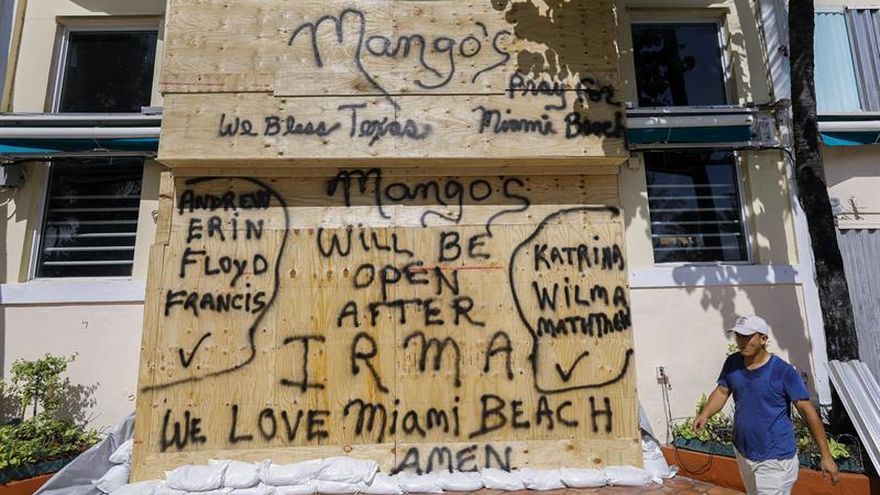 Mango's
We Bless Texas
Pray For
Miami Beach
Mango's
Will BE
OPEN
AFTER
IRMA
ANDREW
ERIN
FLOYD
FRANCIS
✓
KATRINA
WILMA
MATTHEW
✓
WE LOVE Miami BEACH
AMEN